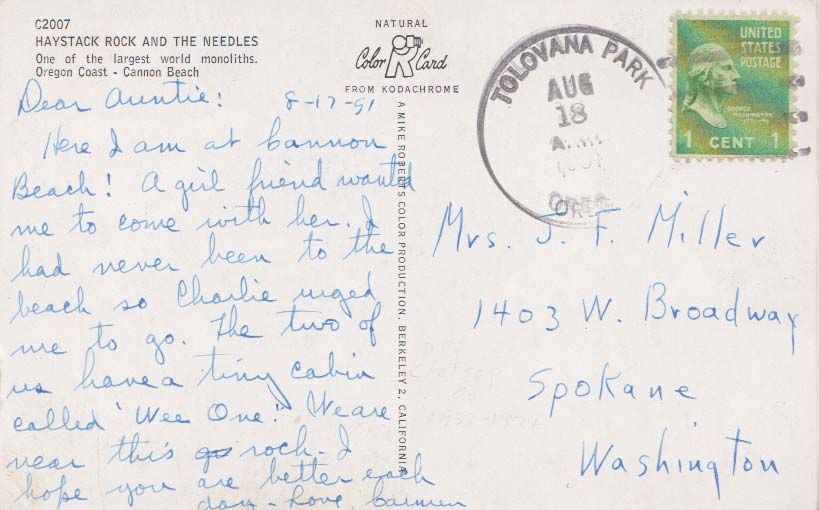 C2007
HAYSTACK ROCK AND THE NEEDLES
One of the largest world monoliths.
Oregon Coast - Cannon Beach
NATURAL
Color Card
FROM KODACHROME
A MIKE ROBERTS COLOR PRODUCTION, BERKELEY 2, CALIFORNIA
TOLOVANA PARK
AUG
18
A.M.
OREG.
UNITED
STATES
POSTAGE
GEORGE
WASHINGTON
1 CENT 1
Dear Auntie: 8-17-51
Here I am at Cannon
Beach! A girl friend wanted
me to come with her. I
had never been to the
beach so Charlie urged
me to go. The two of
us have a tiny cabin
called "Wee One". We are
near this rock. I
hope you are better each
day - Love, Carmen
Mrs. J. F. Miller
1403 W. Broadway
Spokane
Washington